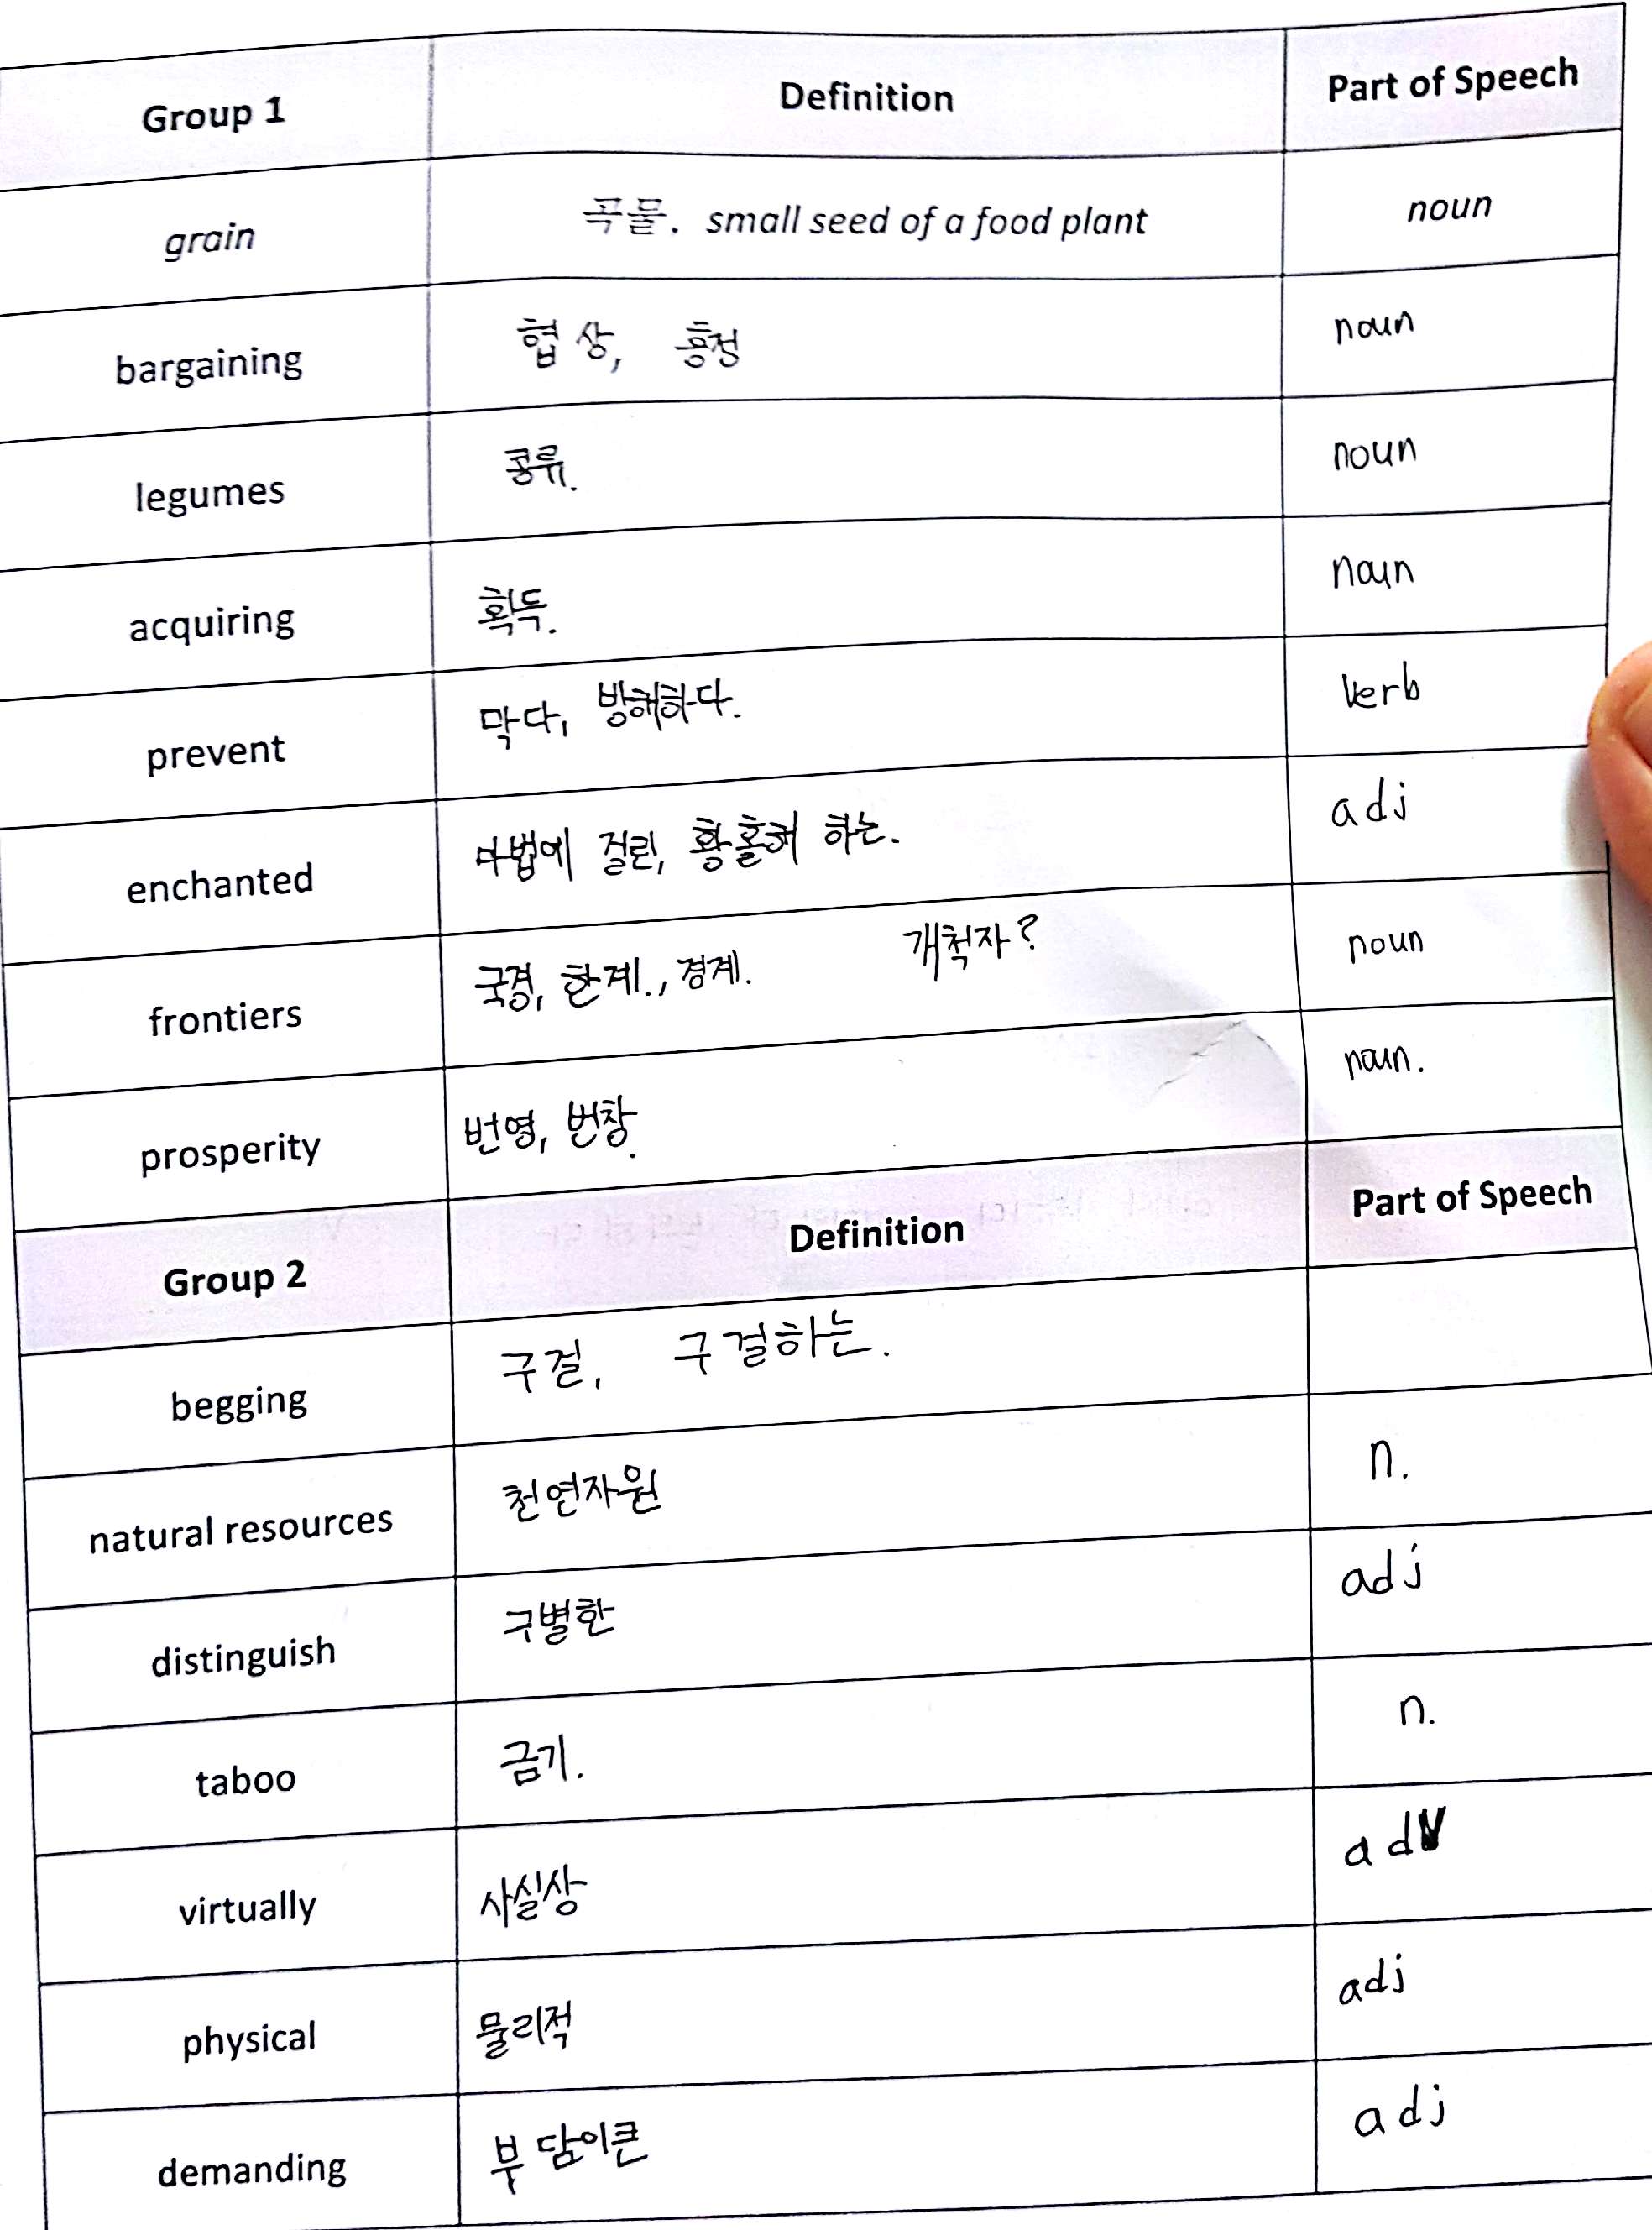 Group 1 Definition Part of Speech
grain 곡물. small seed of a food plant noun
bargaining 협상, 흥정 noun
legumes 콩류. noun
acquiring 획득. noun
prevent 막다, 방해하다. verb
enchanted 마법에 걸린, 황홀해 하는. adj
frontiers 국경, 한계., 경계. 개척자? noun
prosperity 번영, 번창. noun.
Group 2 Definition Part of Speech
begging 구걸, 구걸하는.
natural resources 천연자원 n.
distinguish 구별한 adj
taboo 금기. n.
virtually 사실상 adv
physical 물리적 adj
demanding 부담이큰 adj